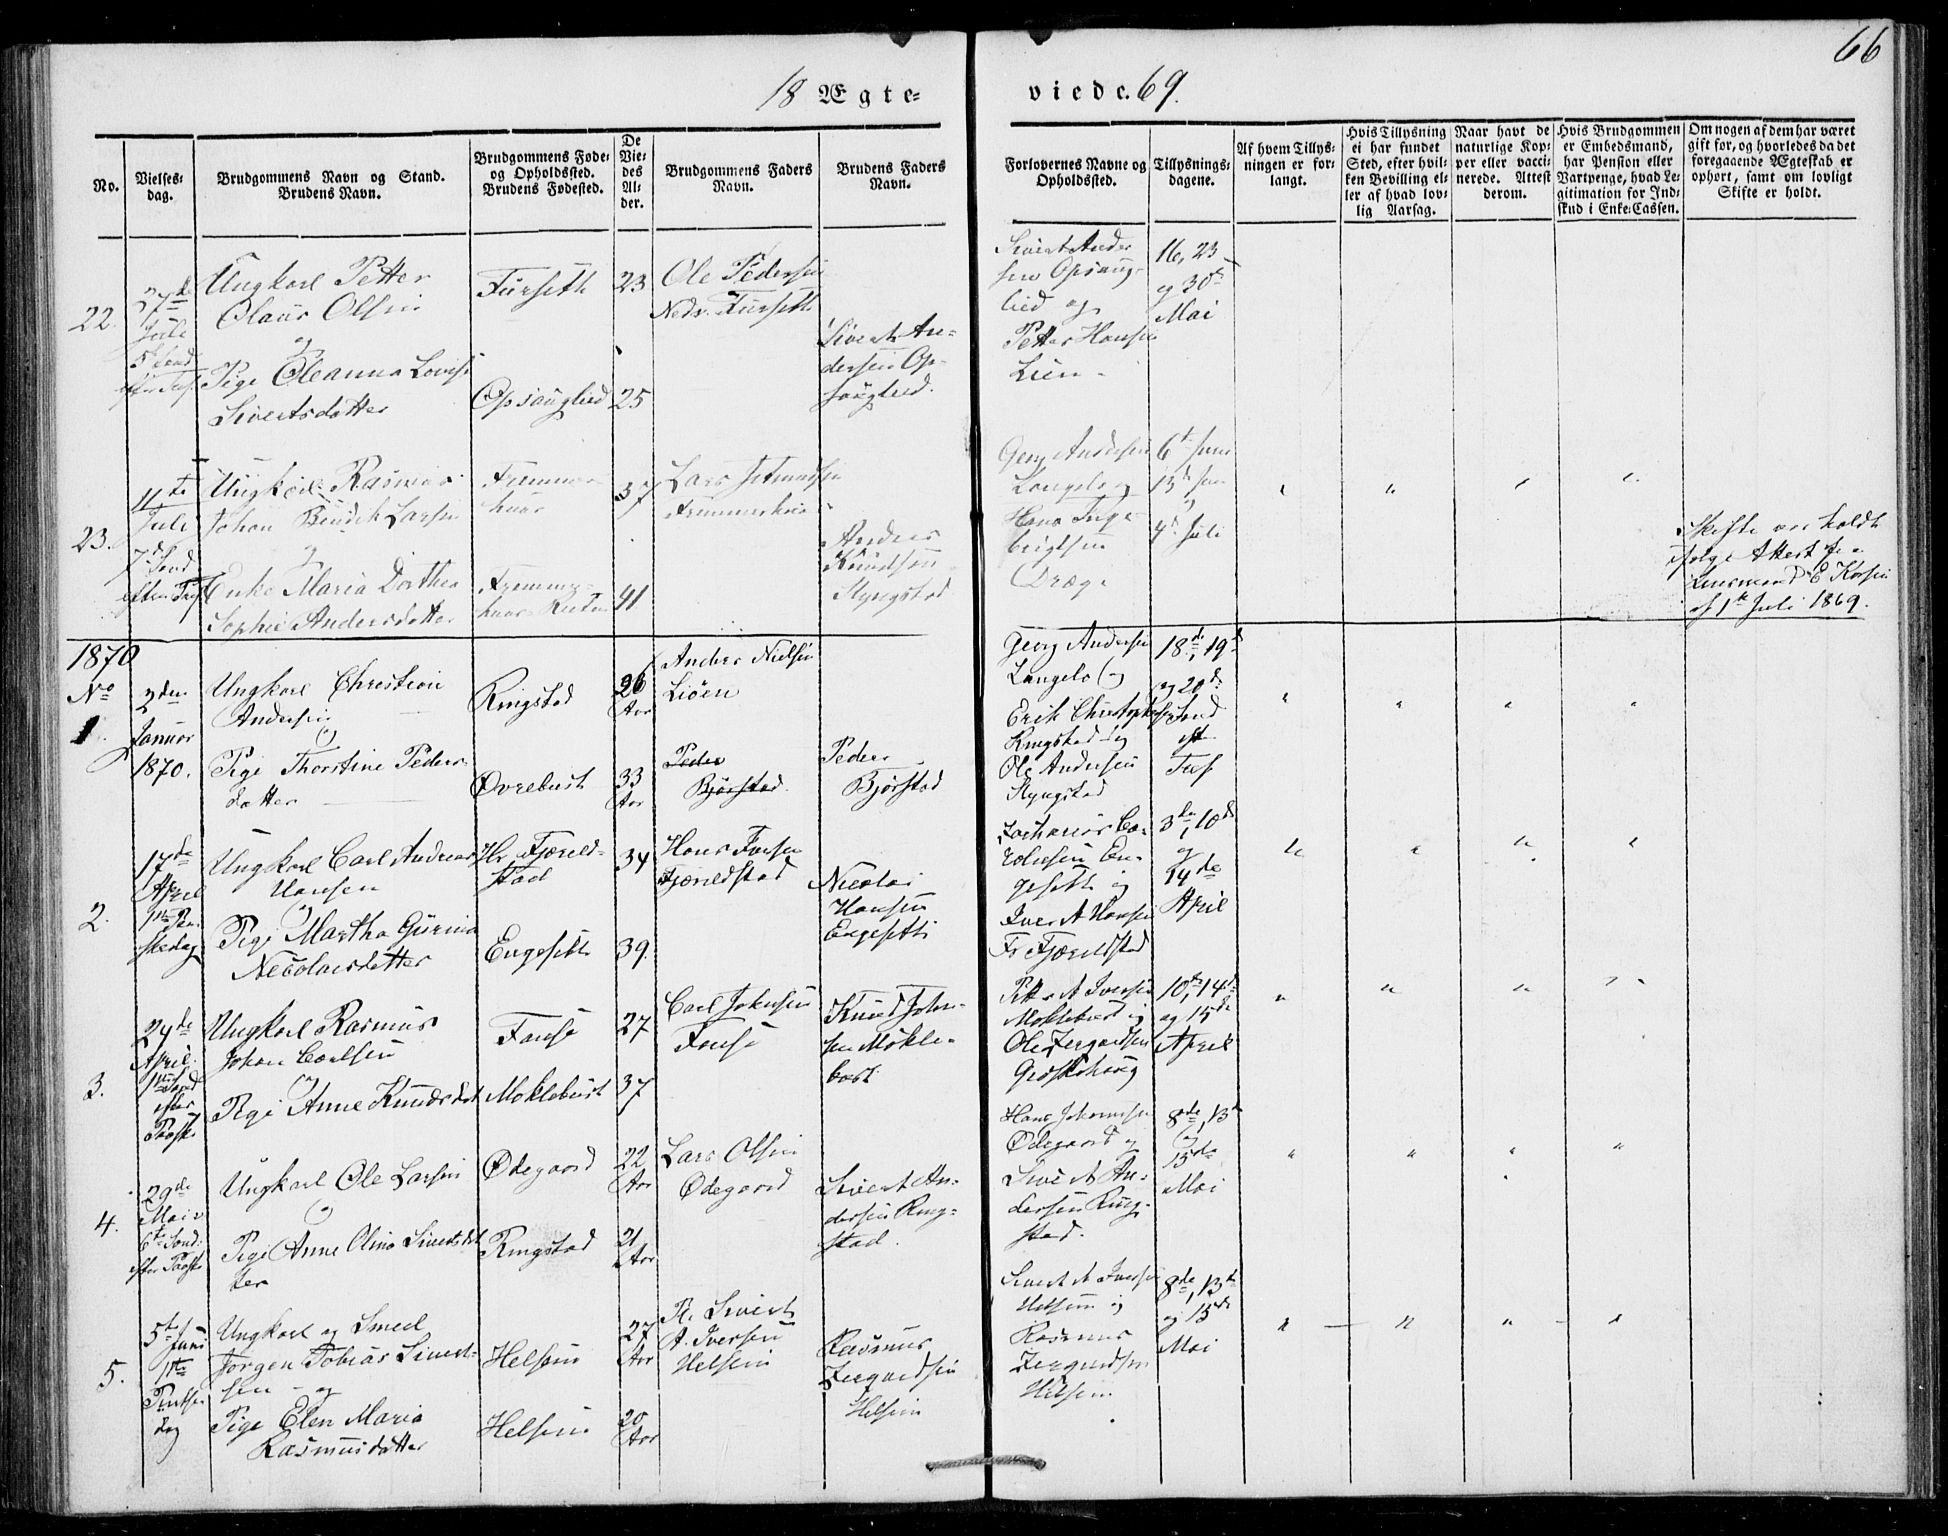 66
18 Ægte-
viede. 69.
No.
Vielses-
dag.
Brudgommens Navn og Stand.
Brudens Navn.
Brudgommens Føde-
og Opholdssted.
Brudens Fødested.
De
Vie-
des
Al-
der.
Brudgommens Faders
Navn.
Brudens Faders
Navn.
Forlovernes Navne og
Opholdssted.
Tillysnings-
dagene.
Af hvem Tillys-
ningen er for-
langt.
Hvis Tillysning
ei har fundet
Sted, efter hvil-
ken Bevilling el-
ler af hvad lov-
lig Aarsag.
Naar havt de
naturlige Kop-
per eller vacci-
nerede. Attest
derom.
Hvis Brudgommen
er Embedsmand,
har Pension eller
Vartpenge, hvad Le-
gitimation for Ind-
skud i Enke-Cassen.
Om nogen af dem har været
gift før, og hvorledes da det
foregaaende Ægteskab er
ophørt, samt om lovligt
Skifte er holdt.
22.
Juli
Ungkarl Petter
Olaus Olsen
og
Pige Oleanna Lovise
Sivertsdatter
Furseth
Opsauglied
23
25
Ole Pedersen
Nedr. Furseth
Sivert An-
dersen Op-
sauglied.
Sivert Ander
sen Opsaug-
lied og
Petter Hansen
Lien.
16, 23
og 30te
Mai
23.
11te
Juli
7de Sønd
efter Tref
Ungkarl Rasmus
Johan Bendik Larsen
og
Enke Maria Dorthea
Sophie Andersdatter
37
41
Lars
Anders
Knudsen
Slyngstad
Georg Andersen
Langelo og
Hans Inge-
brigtsen
Drage
6te Juni
13de Juni
og
4de Juli
Skifte er holdt
ifølge Attest fra
Lensmand E Korsen
af 1ste Juli 1869.
1870
No
1.
2den
Januar
1870.
Ungkarl Christian
Andersen
og
Pige Thorstine Peders-
datter
Ringstad
Øvrebust
26
Aar
33
Aar
Anders Nielsen
Liøen
Peder
Bjørstad.
Peder
Bjørstad
Georg Andersen
Langelo og
Erik Christophersen
Ringstad og
Ole Andersen
Slyngstad
18de, 19de
og 20de
Sønd
eft.
Tref
2.
17de
April
1ste Paa-
skedag
Ungkarl Carl Andreas
Hansen
og
Pige Martha Gurina
Nicolaisdatter
Fjørild-
stad
Engesett
34
39.
Hans Iversen
Fjørildstad
Nicolai
Hansen
Engesett
Zacharias Ca-
En-
gesett og
Iver A Hansen
Fjørildstad
3die, 10de
og
14de
April
3.
24de
April
1ste Sønd
efter
Paaske
Ungkarl Rasmus
Johan Carlsen
og
Pige Anne Knudsdat
Farsø
Moklebust
27
37
Carl Johnsen
Farsø
Knud John-
sen Møkle-
bust
Petter A Iversen
Moklebust og
Ole
10de, 14de
og 15de
April
4.
29de
Mai
6te Sønd:
efter Paaske
Ungkarl Ole Larsen
og
Pige Anne Olina Sivertsdat
ter
Ødegaard
Ringstad
22
Aar
21
Aar
Lars Olsen
Ødegaard
Sivert An-
dersen Ring-
stad.
Hans Johansen
Ødegaard og
Sivert An-
dersen Ring-
stad.
8de, 13de
og
15de
Mai
5.
5te Juni
1ste
Pintse-
dag
Ungkarl og Smed
Jørgen Tobias Sivert-
sen og
Pige Elen Maria
Rasmusdatter
Helsem
Helsem
27
Aar
20
Aar
Sivert
A. Iversen
Helsem
Rasmus
Helsem
Sivert A Iversen
Helsem og
Rasmus
Helsem
8de, 13de
og 15de
Mai